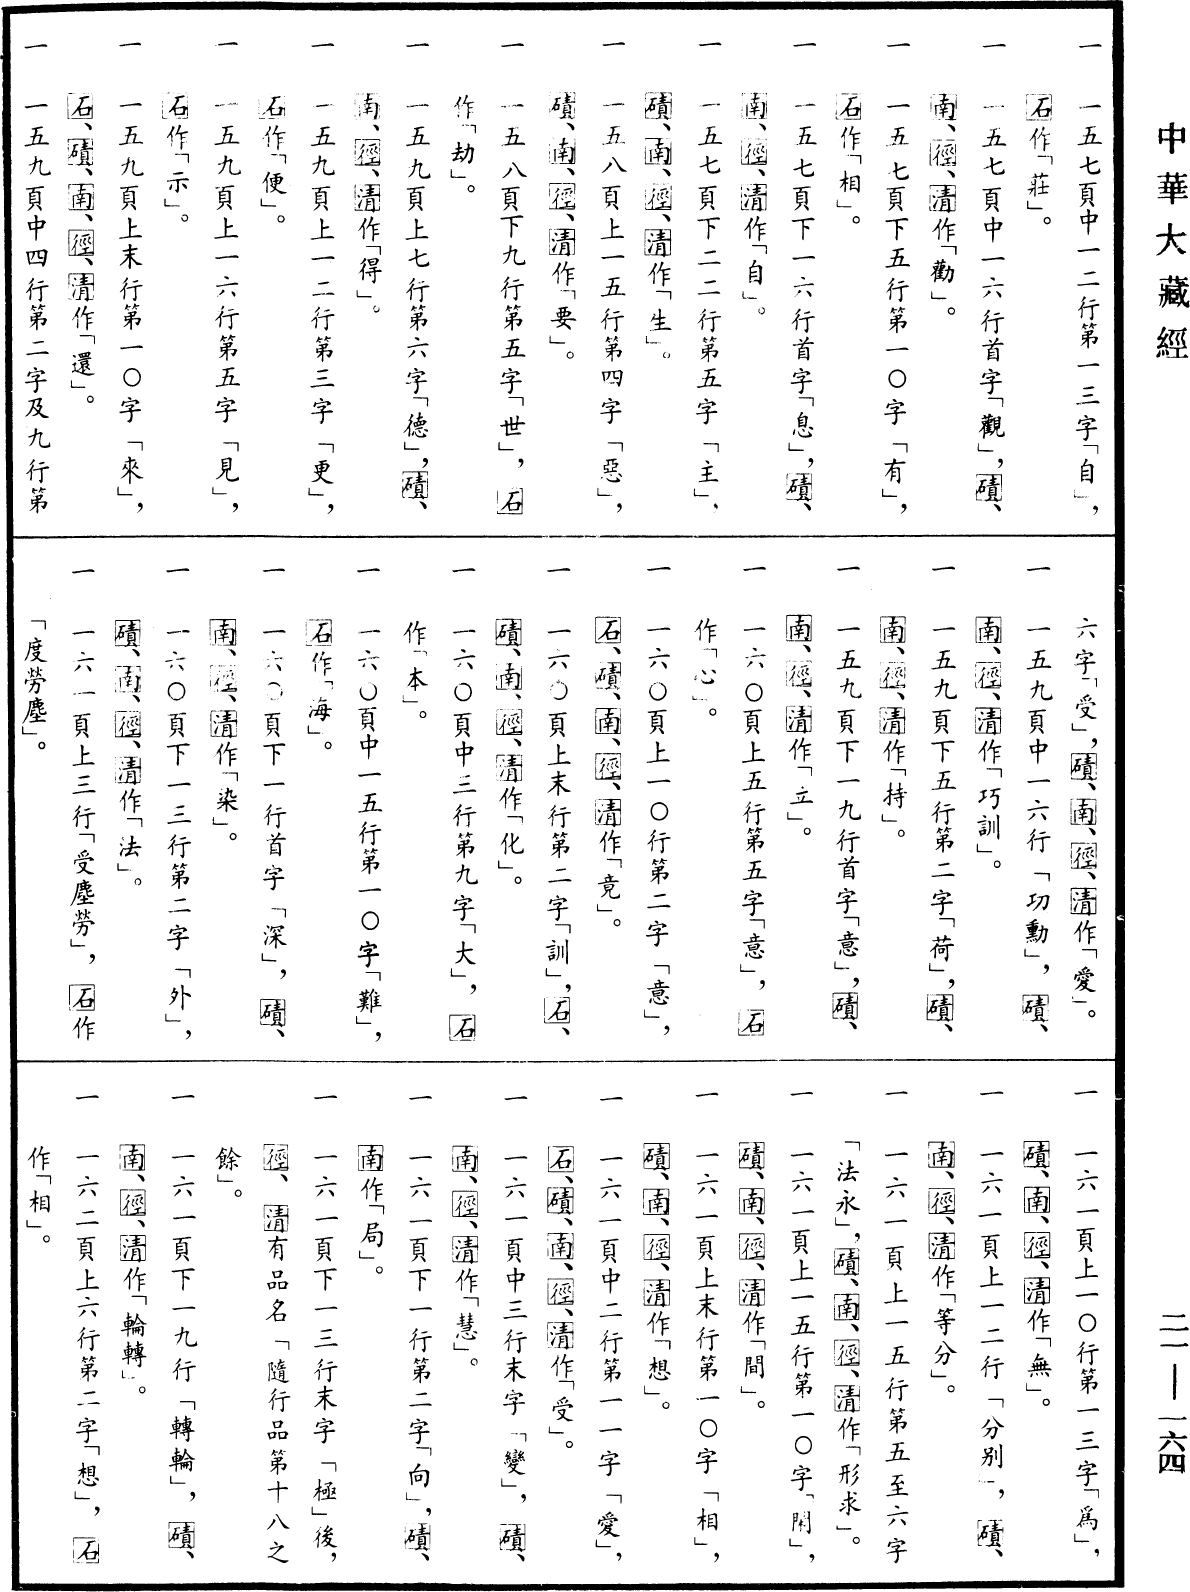 中華大藏經
二一—一六四
一　一五七頁中一二行第一三字「自」，
石作「莊」。
一　一五七頁中一六行首字「觀」，磧、
南、徑、清作「勸」。
一　一五七頁下五行第一〇字「有」，
石作「相」。
一　一五七頁下一六行首字「息」，磧、
南、徑、清作「自」。
一　一五七頁下二二行第五字「主」，
磧、南、徑、清作「生」。
一　一五八頁上一五行第四字「惡」，
磧、南、徑、清作「要」。
一　一五八頁下九行第五字「世」，石
作「劫」。
一　一五九頁上七行第六字「德」，磧、
南、徑、清作「得」。
一　一五九頁上一二行第三字「更」，
石作「便」。
一　一五九頁上一六行第五字「見」，
石作「示」。
一　一五九頁上末行第一〇字「來」，
石、磧、南、徑、清作「還」。
一　一五九頁中四行第二字及九行第
六字「受」，磧、南、徑、清作「愛」。
一　一五九頁中一六行「功勳」，磧、
南、徑、清作「巧訓」。
一　一五九頁下五行第二字「荷」，磧、
南、徑、清作「持」。
一　一五九頁下一九行首字「意」，磧、
南、徑、清作「立」。
一　一六〇頁上五行第五字「意」，石
作「心」。
一　一六〇頁上一〇行第二字「意」，
石、磧、南、徑、清作「竟」。
一　一六〇頁上末行第二字「訓」，石、
磧、南、徑、清作「化」。
一　一六〇頁中三行第九字「大」，石
作「本」。
一　一六〇頁中一五行第一〇字「難」，
石作「海」。
一　一六〇頁下一行首字「深」，磧、
南、徑、清作「染」。
一　一六〇頁下一三行第二字「外」，
磧、南、徑、清作「法」。
一　一六一頁上三行「受塵勞」，石作
「度勞塵」。
一　一六一頁上一〇行第一三字「爲」，
磧、南、徑、清作「無」。
一　一六一頁上一二行「分别」，磧、
南、徑、清作「等分」。
一　一六一頁上一五行第五至六字
「法永」，磧、南、徑、清作「形求」。
一　一六一頁上一五行第一〇字「閑」，
磧、南、徑、清作「間」。
一　一六一頁上末行第一〇字「相」，
磧、南、徑、清作「想」。
一　一六一頁中二行第一一字「愛」，
石、磧、南、徑、清作「受」。
一　一六一頁中三行末字「變」，磧、
南、徑、清作「慧」。
一　一六一頁下一行第二字「向」，磧、
南作「局」。
一　一六一頁下一三行末字「極」後，
徑、清有品名「隨行品第十八之
餘」。
一　一六一頁下一九行「轉輪」，磧、
南、徑、清作「輪轉」。
一　一六二頁上六行第二字「想」，石
作「相」。